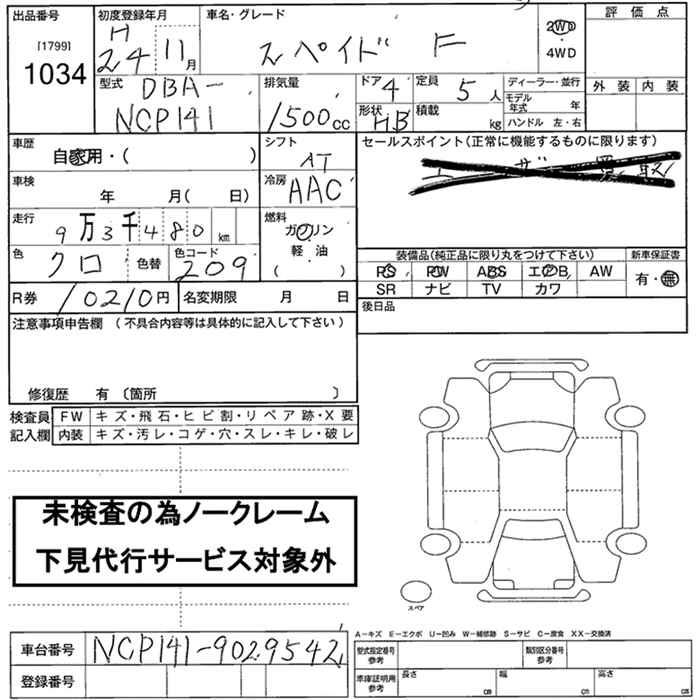 出品番号 初度登録年月 車名・グレード 評価点
[1799] H 2WD
1034 24 11月 スペイド F ・
4WD
型式 排気量 ドア 定員 ディーラー・並行 外装 内装
DBA- 4 5人 モデル年式 年
NCP141 1500cc 形状 HB 積載 kg ハンドル 左・右
車歴 シフト セールスポイント(正常に機能するものに限ります)
自家用・( ) AT
車検 冷房
年 月( 日) AAC
走行 燃料
9万3千480km ガソリン
色 色コード 軽・油
クロ 色替 209 ( )
装備品(純正品に限り丸をつけて下さい) 新車保証書
PS PW ABS エアB AW 有・無
SR ナビ TV カワ
R券 10210円 名変期限 月 日 後日品
注意事項申告欄 (不具合内容等は具体的に記入して下さい)
修復歴 有 〔箇所 〕
検査員 FW キズ・飛石・ヒビ割・リペア跡・X要
記入欄 内装 キズ・汚レ・コゲ・穴・スレ・キレ・破レ
未検査の為ノークレーム
下見代行サービス対象外
スペア
A−キズ E−エクボ U−凹み W−補修跡 S−サビ C−腐食 XX−交換済
車台番号 NCP141-9029542
型式指定番号 参考 類別区分番号 参考
登録番号 車庫証明用 参考 長さ cm 幅 cm 高さ cm